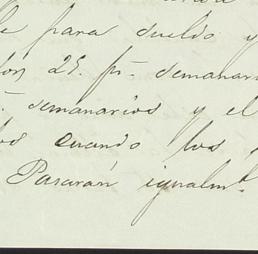 para sueldo y
25. ps. semanar
semanarios y el
cuando los
Pasarán igualmte.